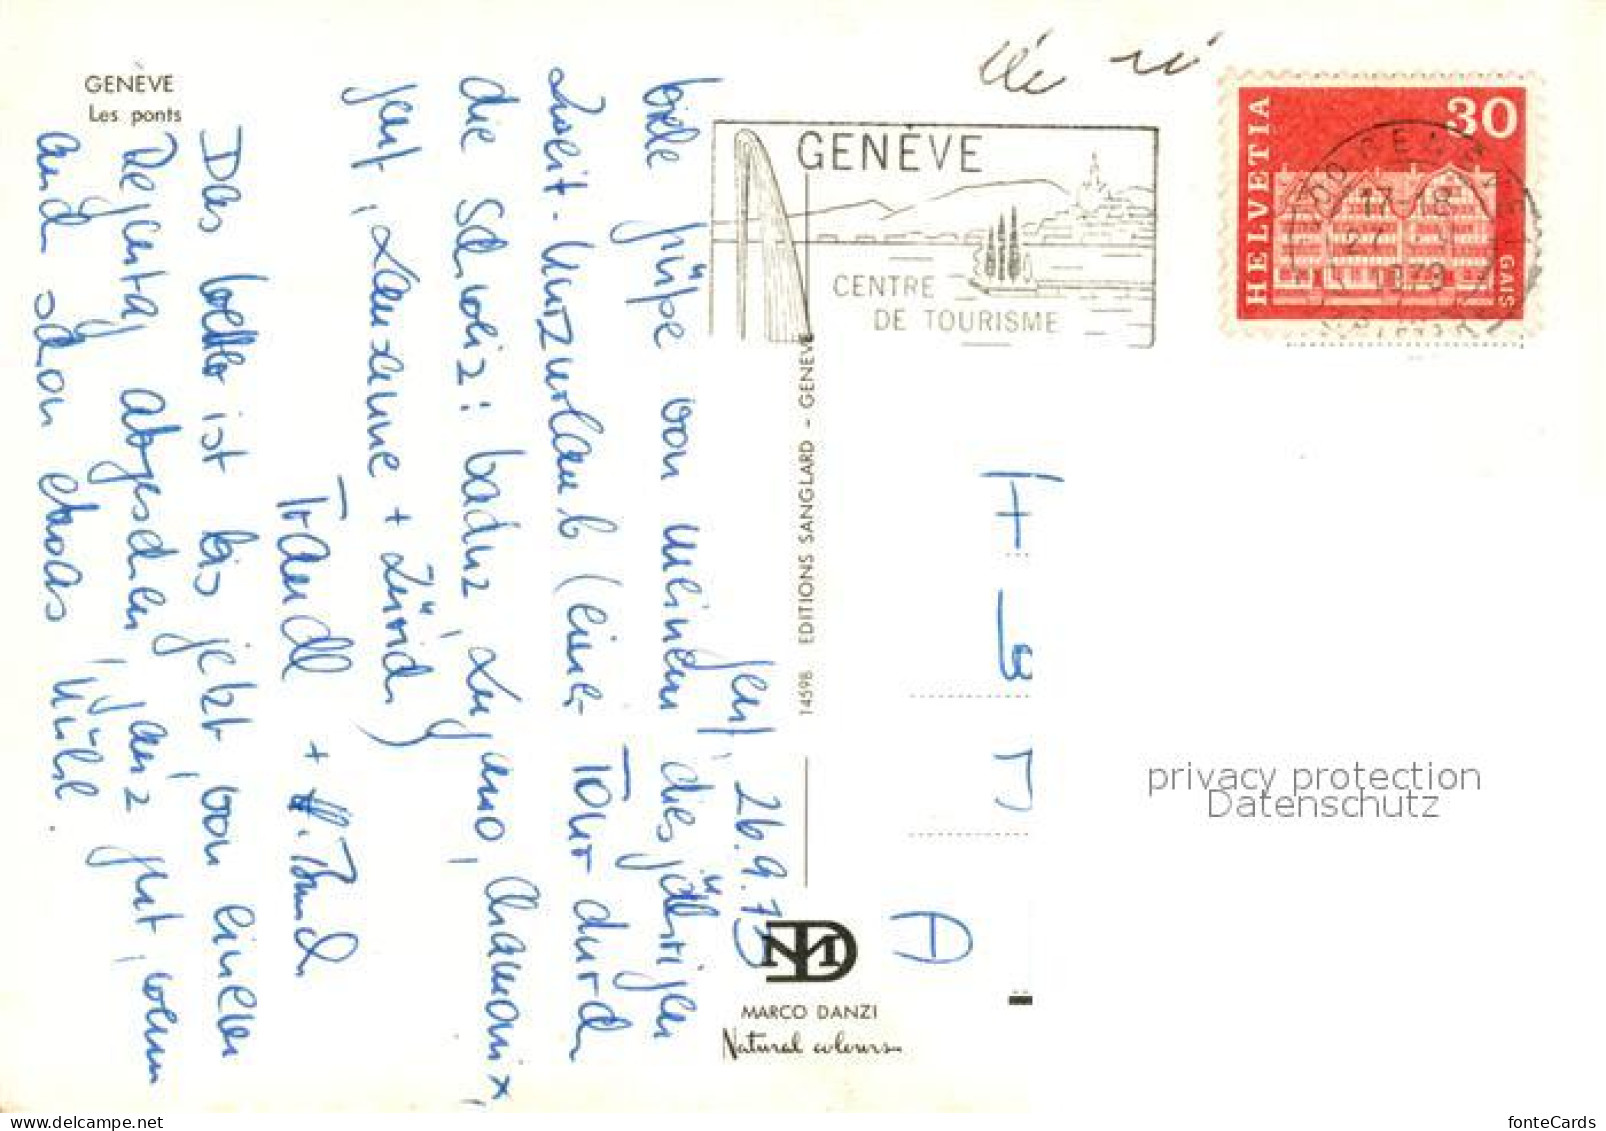 GENÈVE
Les ponts
Genf, 26.9.73
Viele Grüße von meinem diesjährigen
Zweit-Kurzurlaub (einer Tour durch
die Schweiz: Vaduz, Lugano, Chamonix,
Genf, Lausanne + Zürich)
Traudl +
Das Wetter ist bis jetzt, von einem
Regentag abgesehen, ganz gut, wenn
auch schon etwas kühl.
14598 EDITIONS SANGLARD - GENÈVE
MARCO DANZI
Natural colours
GENÈVE
CENTRE
DE TOURISME
HELVETIA
30
GAIS
17-18
27
A
privacy protection
Datenschutz
fonteCards